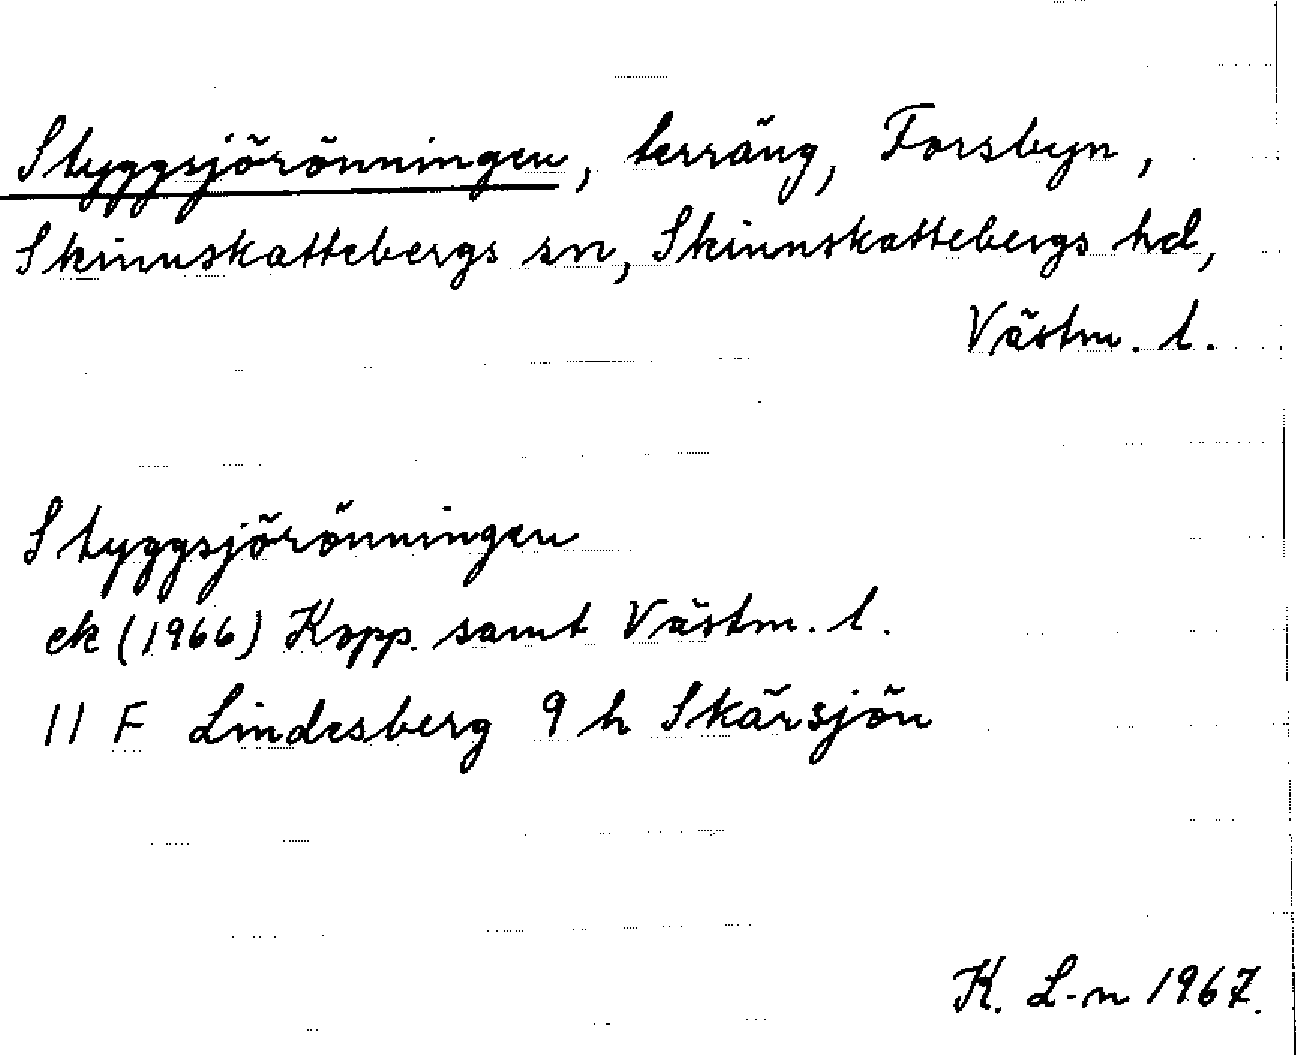 Styggsjörönningen, terräng, Forsbyn,
Skinnskattebergs sn, Skinnskattebergs hd,
Västm. l.
Styggsjörönningen
ek (1966) Kopp. samt Västm. l.
11 F Lindesberg 9 h Skärsjön
K. L-n 1967.